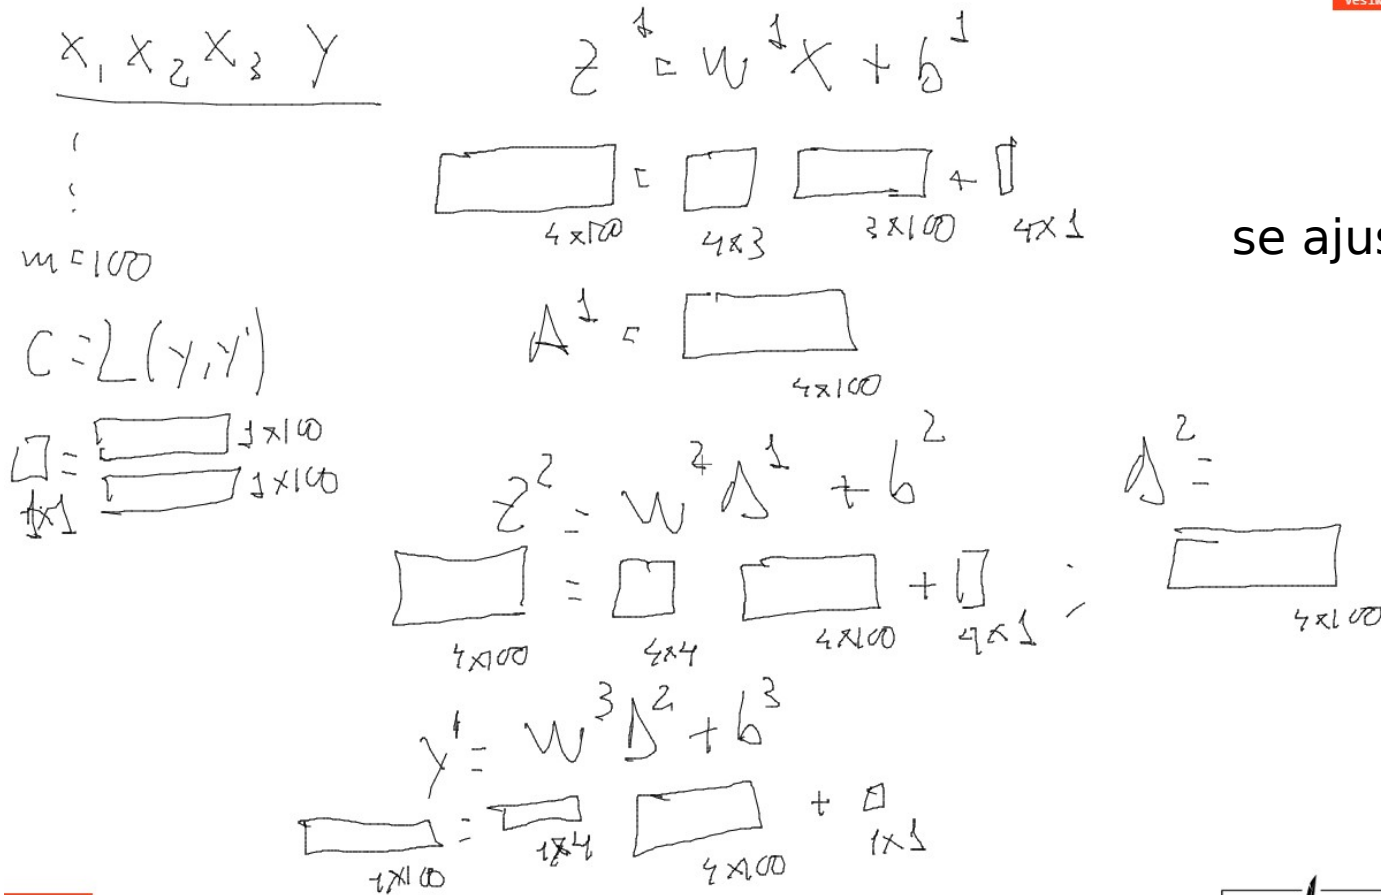 x₁ x₂ x₃ y
⋮
m = 100
C = L(y, y')
1x100
1x100
1x1
Z¹ = W¹X + b¹
= +
4x100 4x3 3x100 4x1
A¹ =
4x100
Z² = W² A¹ + b²
= + ;
4x100 4x4 4x100 4x1
A² =
4x100
y' = W³ A² + b³
= +
1x100 1x4 4x100 1x1
se ajus